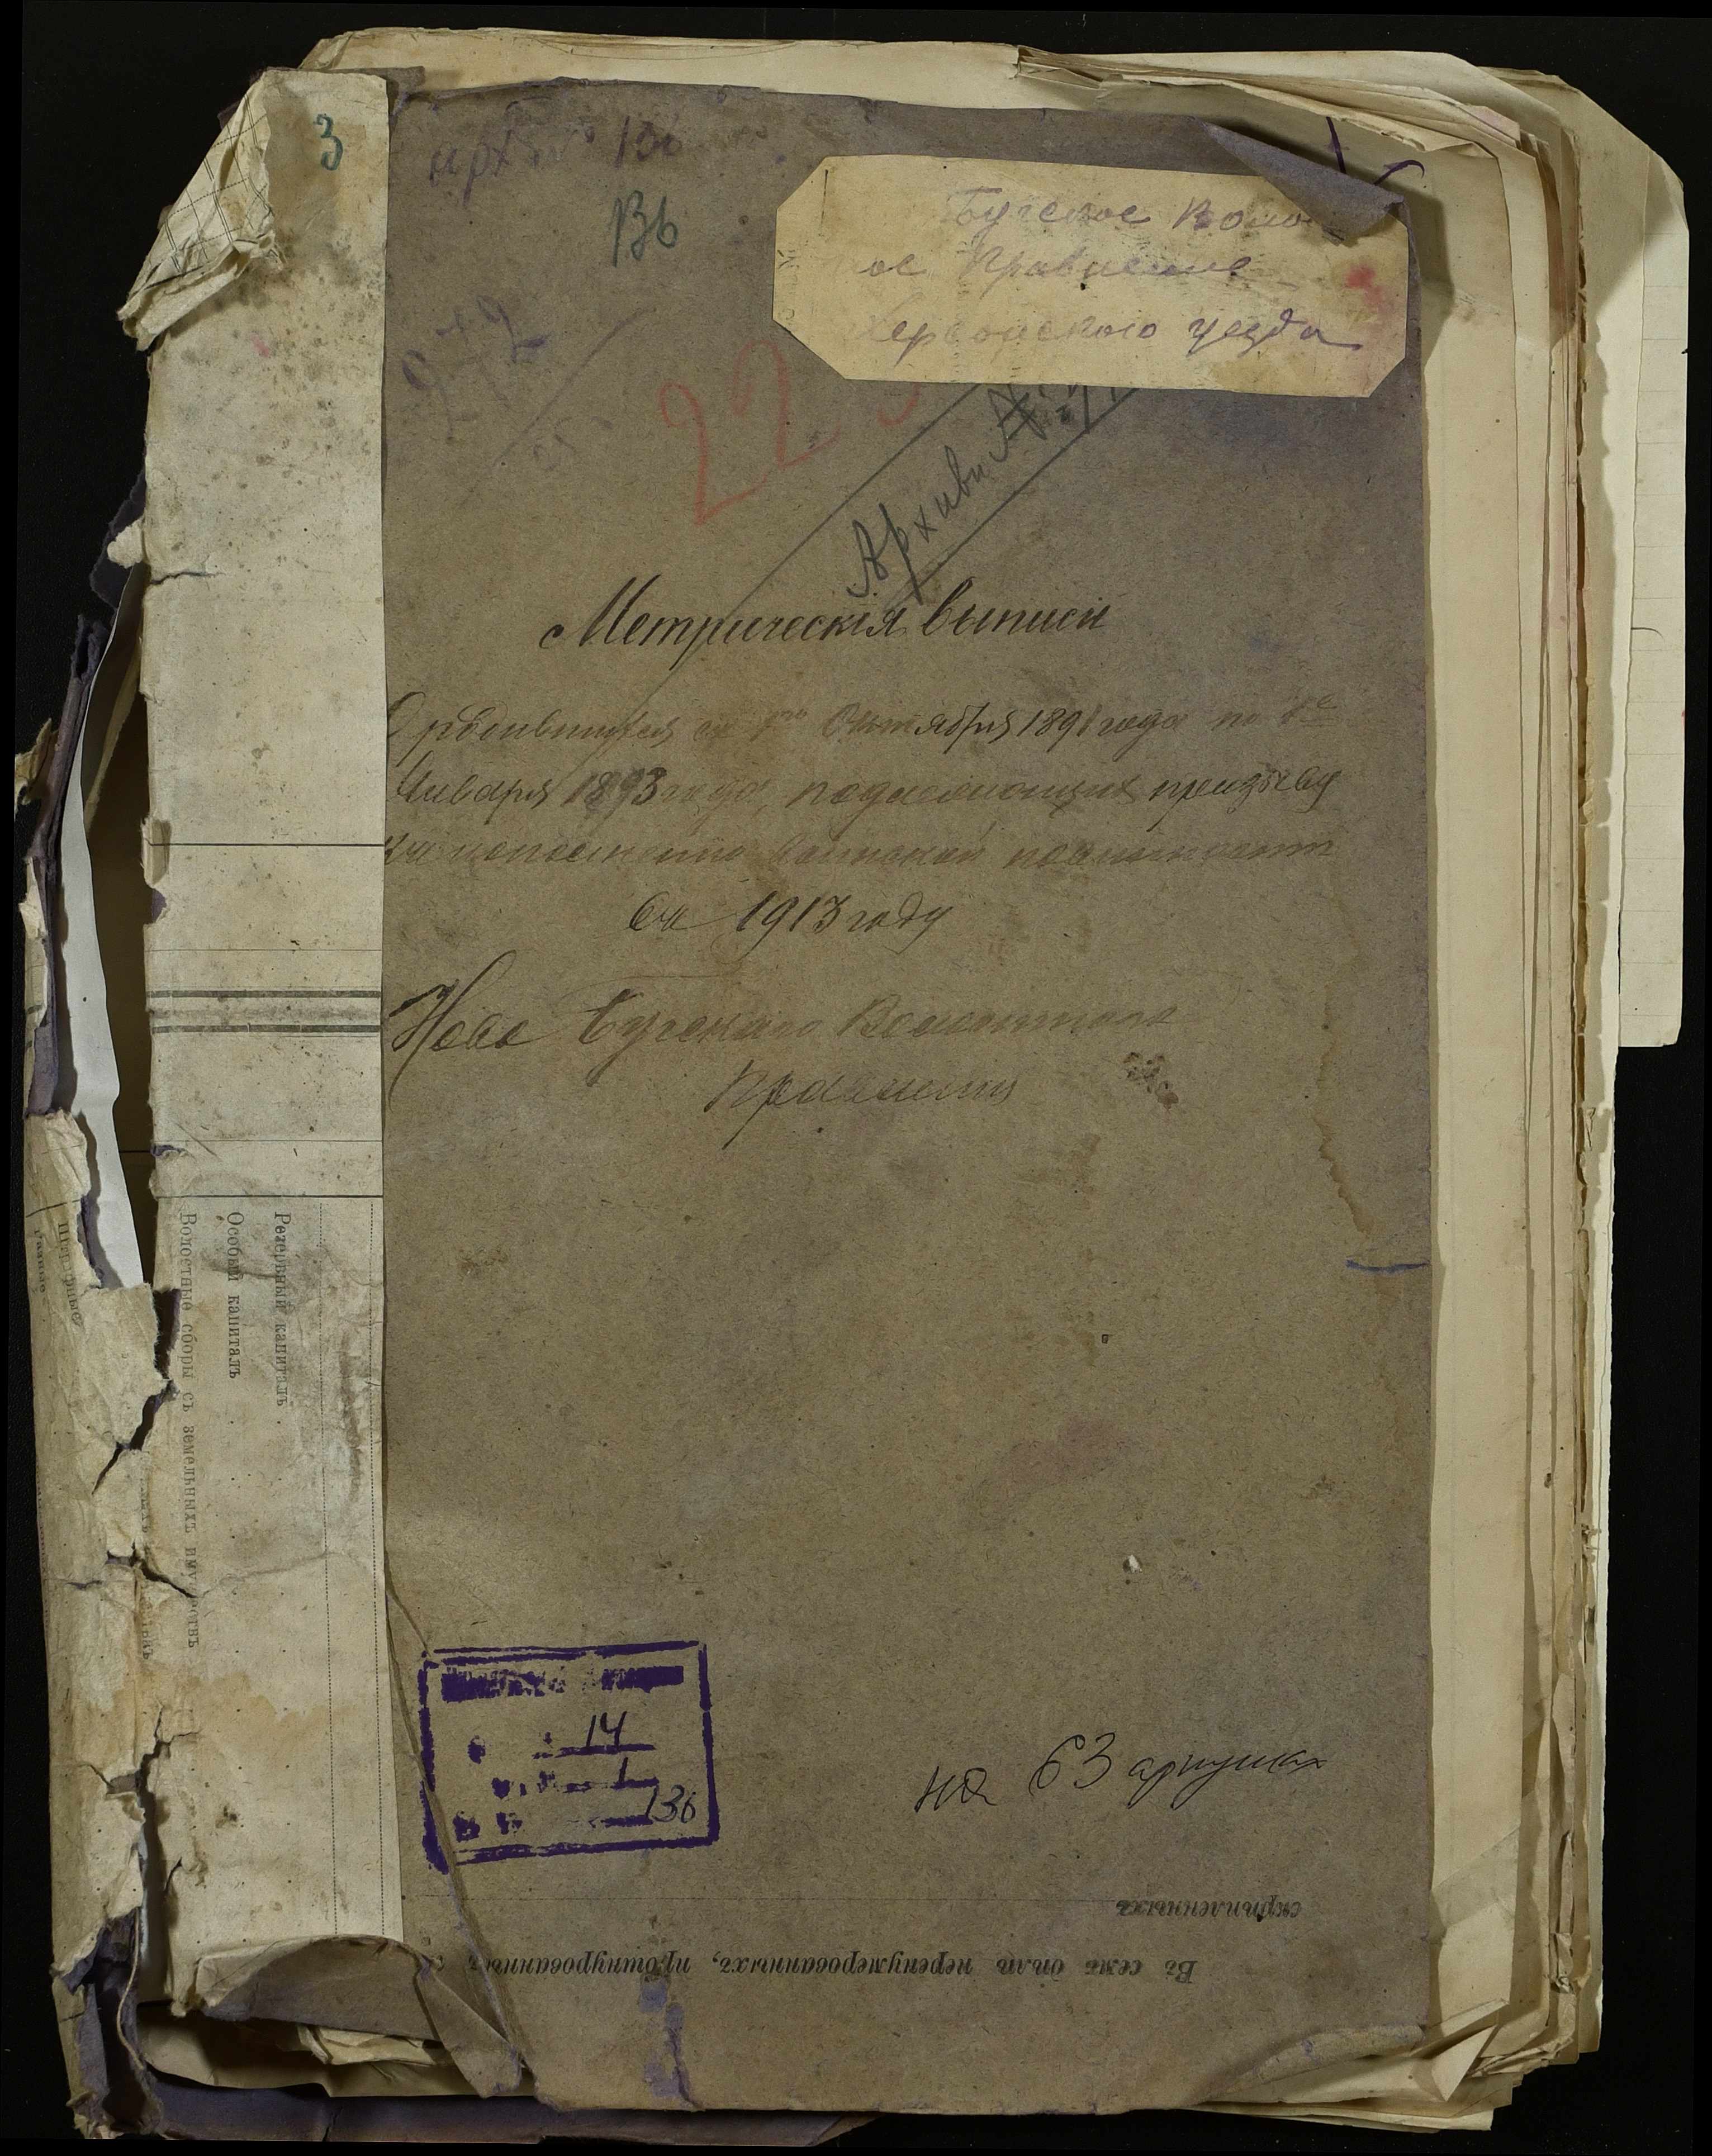 3
арх № 136
136
Бугское Волос
ое Правление
Херсонского уезда
22
Архивн №
Метрическія выписи
О родившихся съ 1го Октября 1891 года по 1е
Января 1893 года, подлежащихъ призыву
къ исполненію воинской повинности
въ 1913 году
Ново Бугскаго Волостного
Правленія
Резервный капиталъ
Особый капиталъ
Волостные сборы съ земельныхъ имуществъ
14
1
136
на 63 аркушах
скрѣпленныхъ
Въ семъ дѣлѣ перенумерованныхъ, прошнурованныхъ,